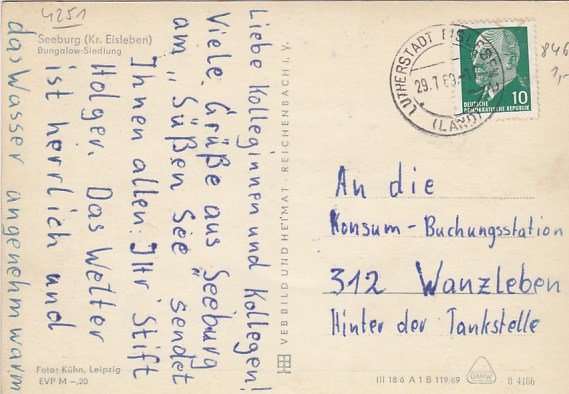 4251
Seeburg (Kr. Eisleben)
Bungalow-Siedlung
Liebe Kolleginnen und Kollegen!
Viele Grüße aus Seeburg
am „Süßen See" sendet
Ihnen allen: Ihr Stift
Holger. Das Wetter
ist herrlich und
das Wasser angenehm warm
Foto: Kühn, Leipzig
EVP M –,20
VEB BILD UND HEIMAT · REICHENBACH I. V.
LUTHERSTADT EISLEBEN
29.7.69
(LAND)
DEUTSCHE
DEMOKRATISCHE REPUBLIK
10
846
1,-
An die
Konsum-Buchungsstation
312 Wanzleben
Hinter der Tankstelle
III 18 6 A 1 B 119/69
B 4166